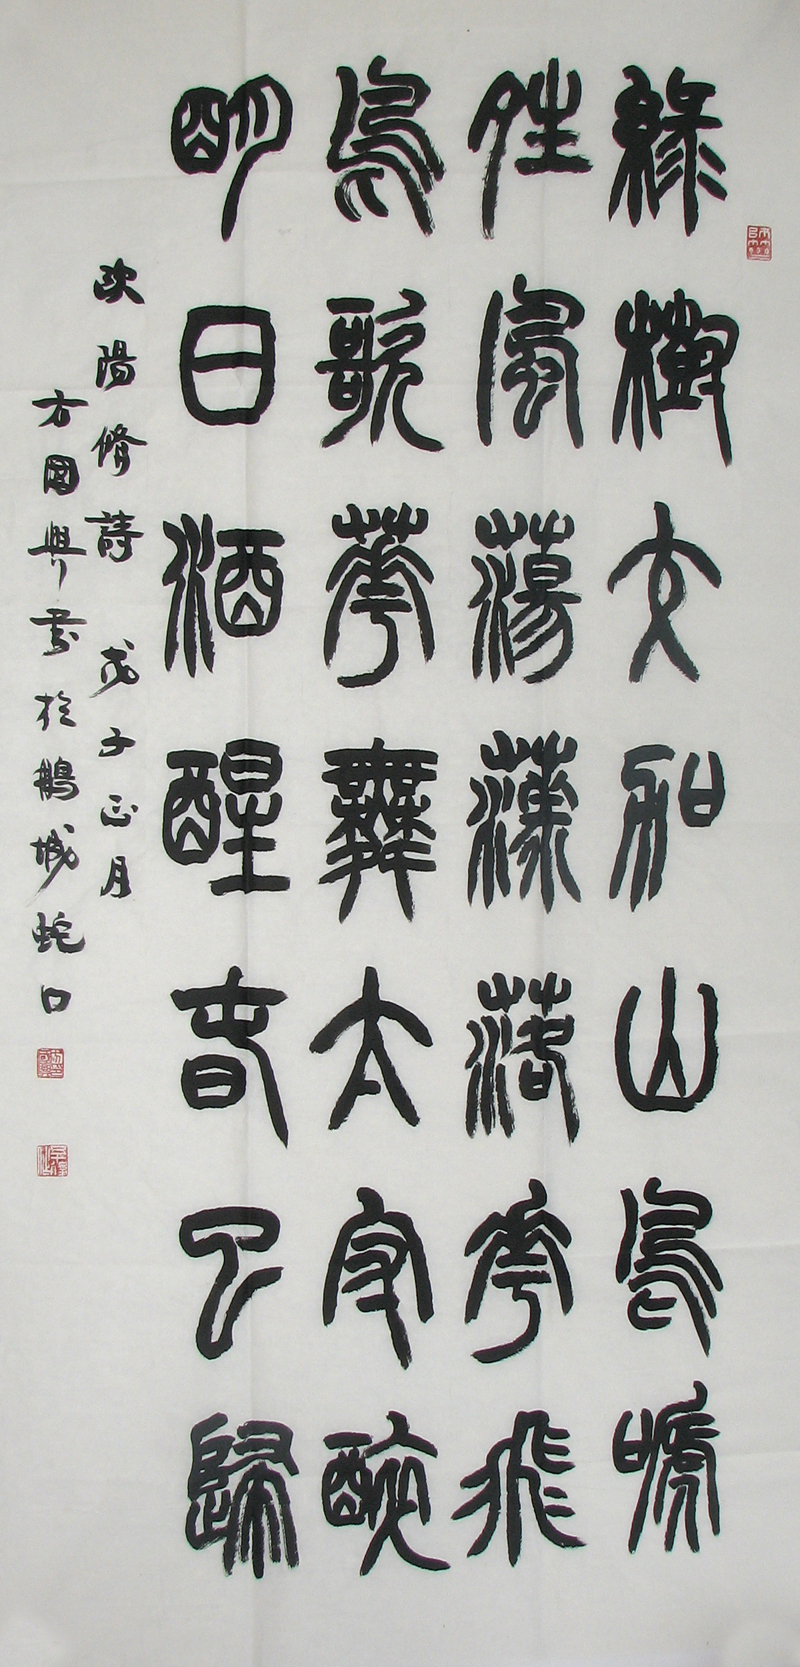 綠樹交加山鳥嗁
夝風蕩漾落華飛
鳥歌華舞太守醉
明日酒醒春已歸
歐陽脩詩 戊子正月
方國興書於鵬城蛇口